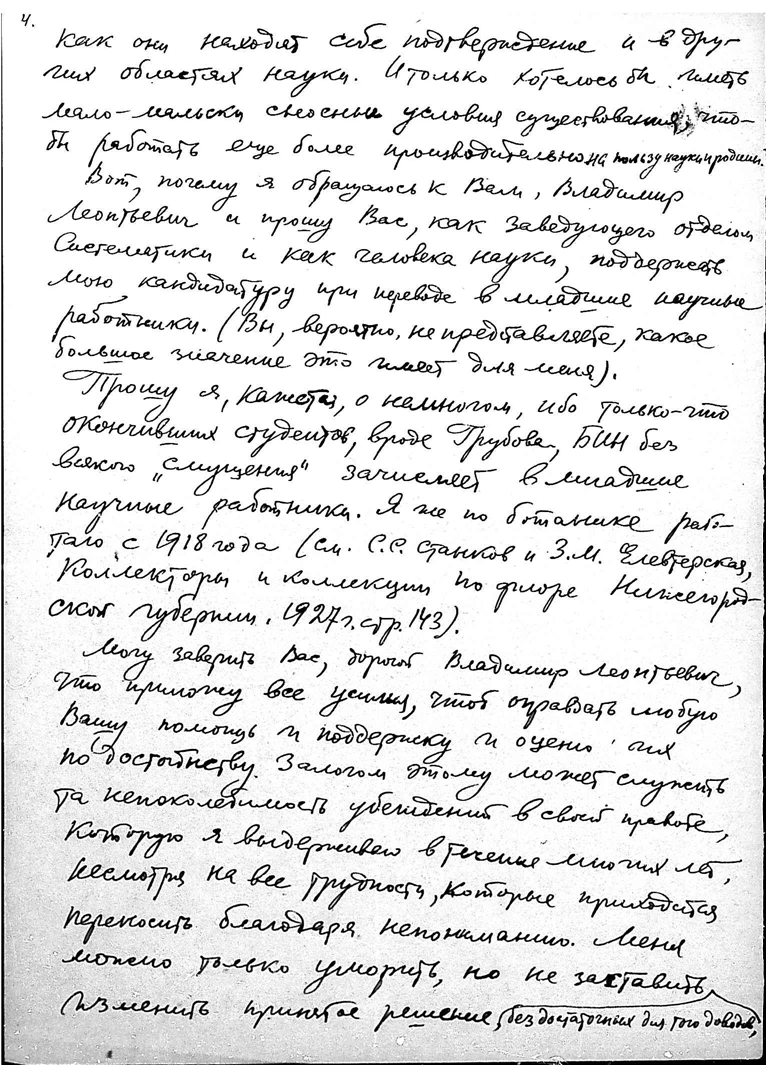 4.
как они находят себе подтверждение и в дру-
гих областях науки. И только хотелось бы иметь
мало-мальски сносные условия существования, что-
бы работать еще более производительно на пользу науки и родины.
Вот, почему я обращаюсь к Вам, Владимир
Леонтьевич и прошу Вас, как заведующего отделом
Систематики и как человека науки, поддержать
мою кандидатуру при переводе в младшие научные
работники. (Вы, вероятно, не представляете, какое
большое значение это имеет для меня).
Прошу я, кажется, о немногом, ибо только-что
окончивших студентов, вроде Грубова, БИН без
всякого „смущения" зачисляет в младшие
научные работники. Я же по ботанике рабо-
таю с 1918 года (см. С.С. Станков и З.М. Елевтерская,
Коллекторы и коллекции по флоре Нижегород-
ской губернии. 1927 г. стр. 143).
Могу заверить Вас, дорогой Владимир Леонтьевич,
что приложу все усилия, чтоб оправдать любую
Вашу помощь и поддержку и оценю их
по достоинству. Залогом этому может служить
та непоколебимость убеждений в своей правоте,
которую я выдерживаю в течение многих лет,
несмотря на все трудности, которые приходится
переносить благодаря непониманию. Меня
можно только уморить, но не заставить
изменить принятое решение, без достаточных для того доводов,